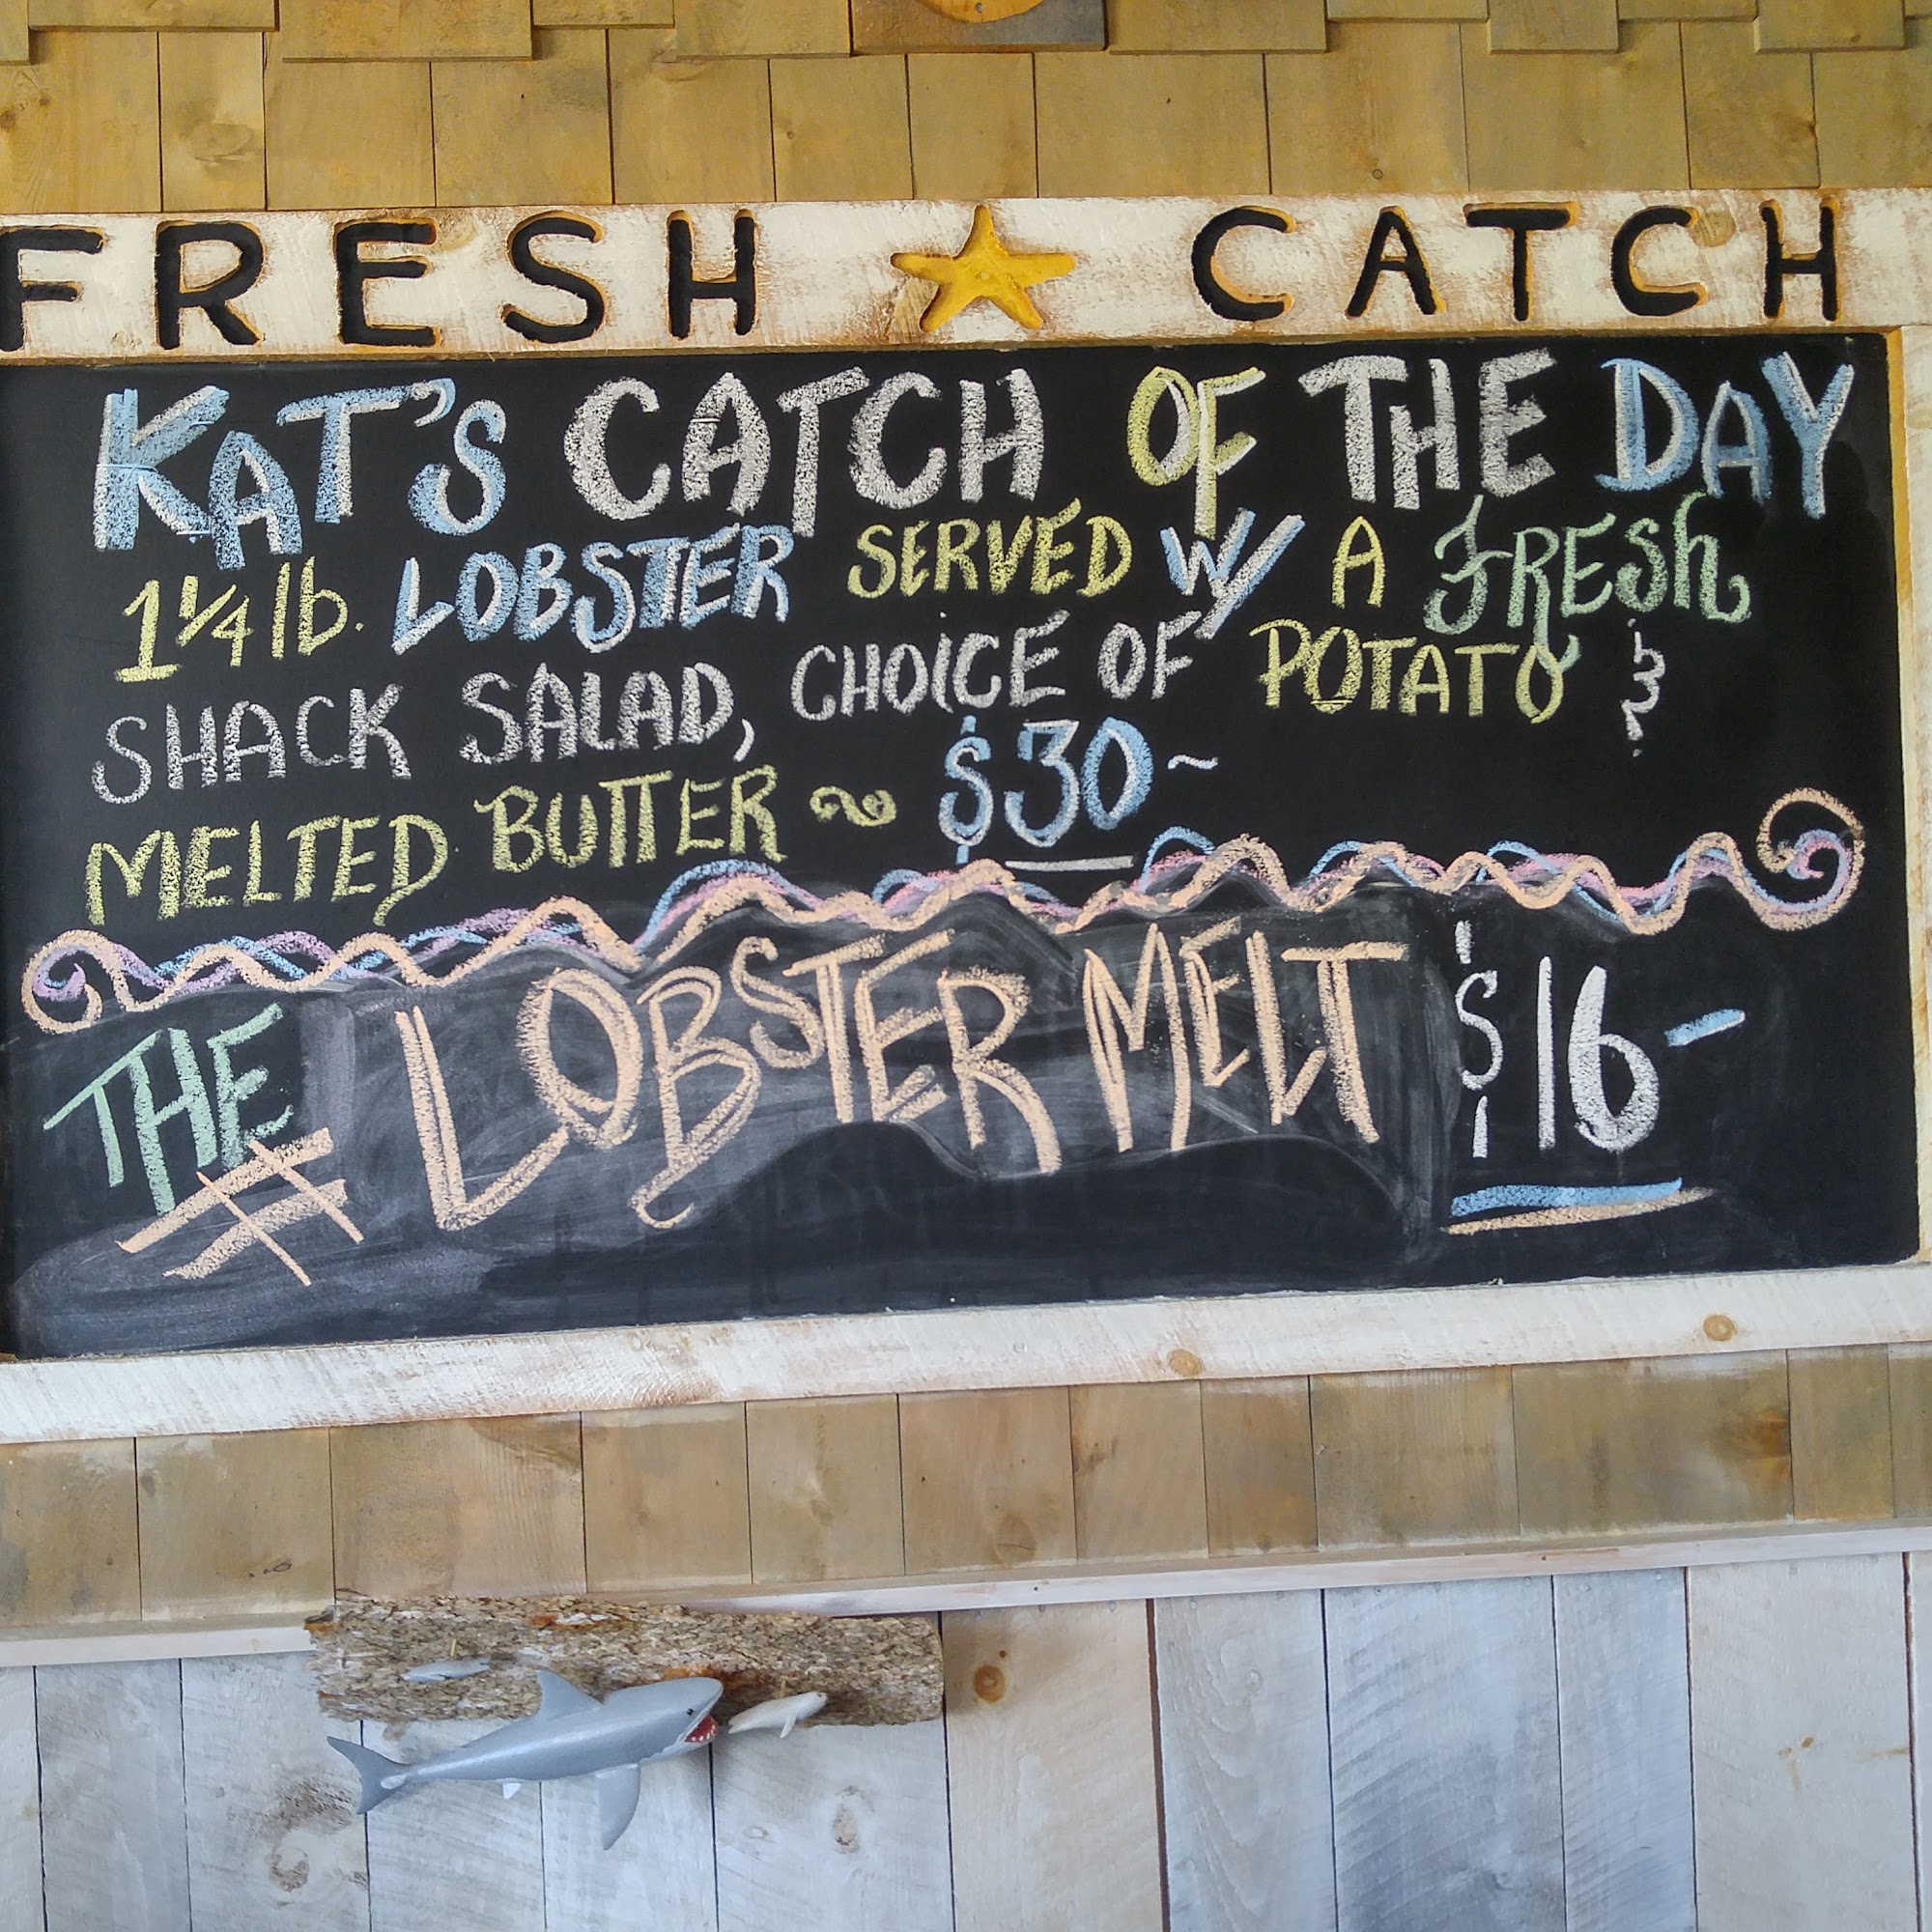 FRESH CATCH
KAT'S CATCH OF THE DAY
1 1/4 lb. LOBSTER SERVED W/ A FRESh
SHACK SALAD, CHOiCE OF POTATO &
MELTED BUTTER ~ $30~
THE # LOBSTER MELT $16-